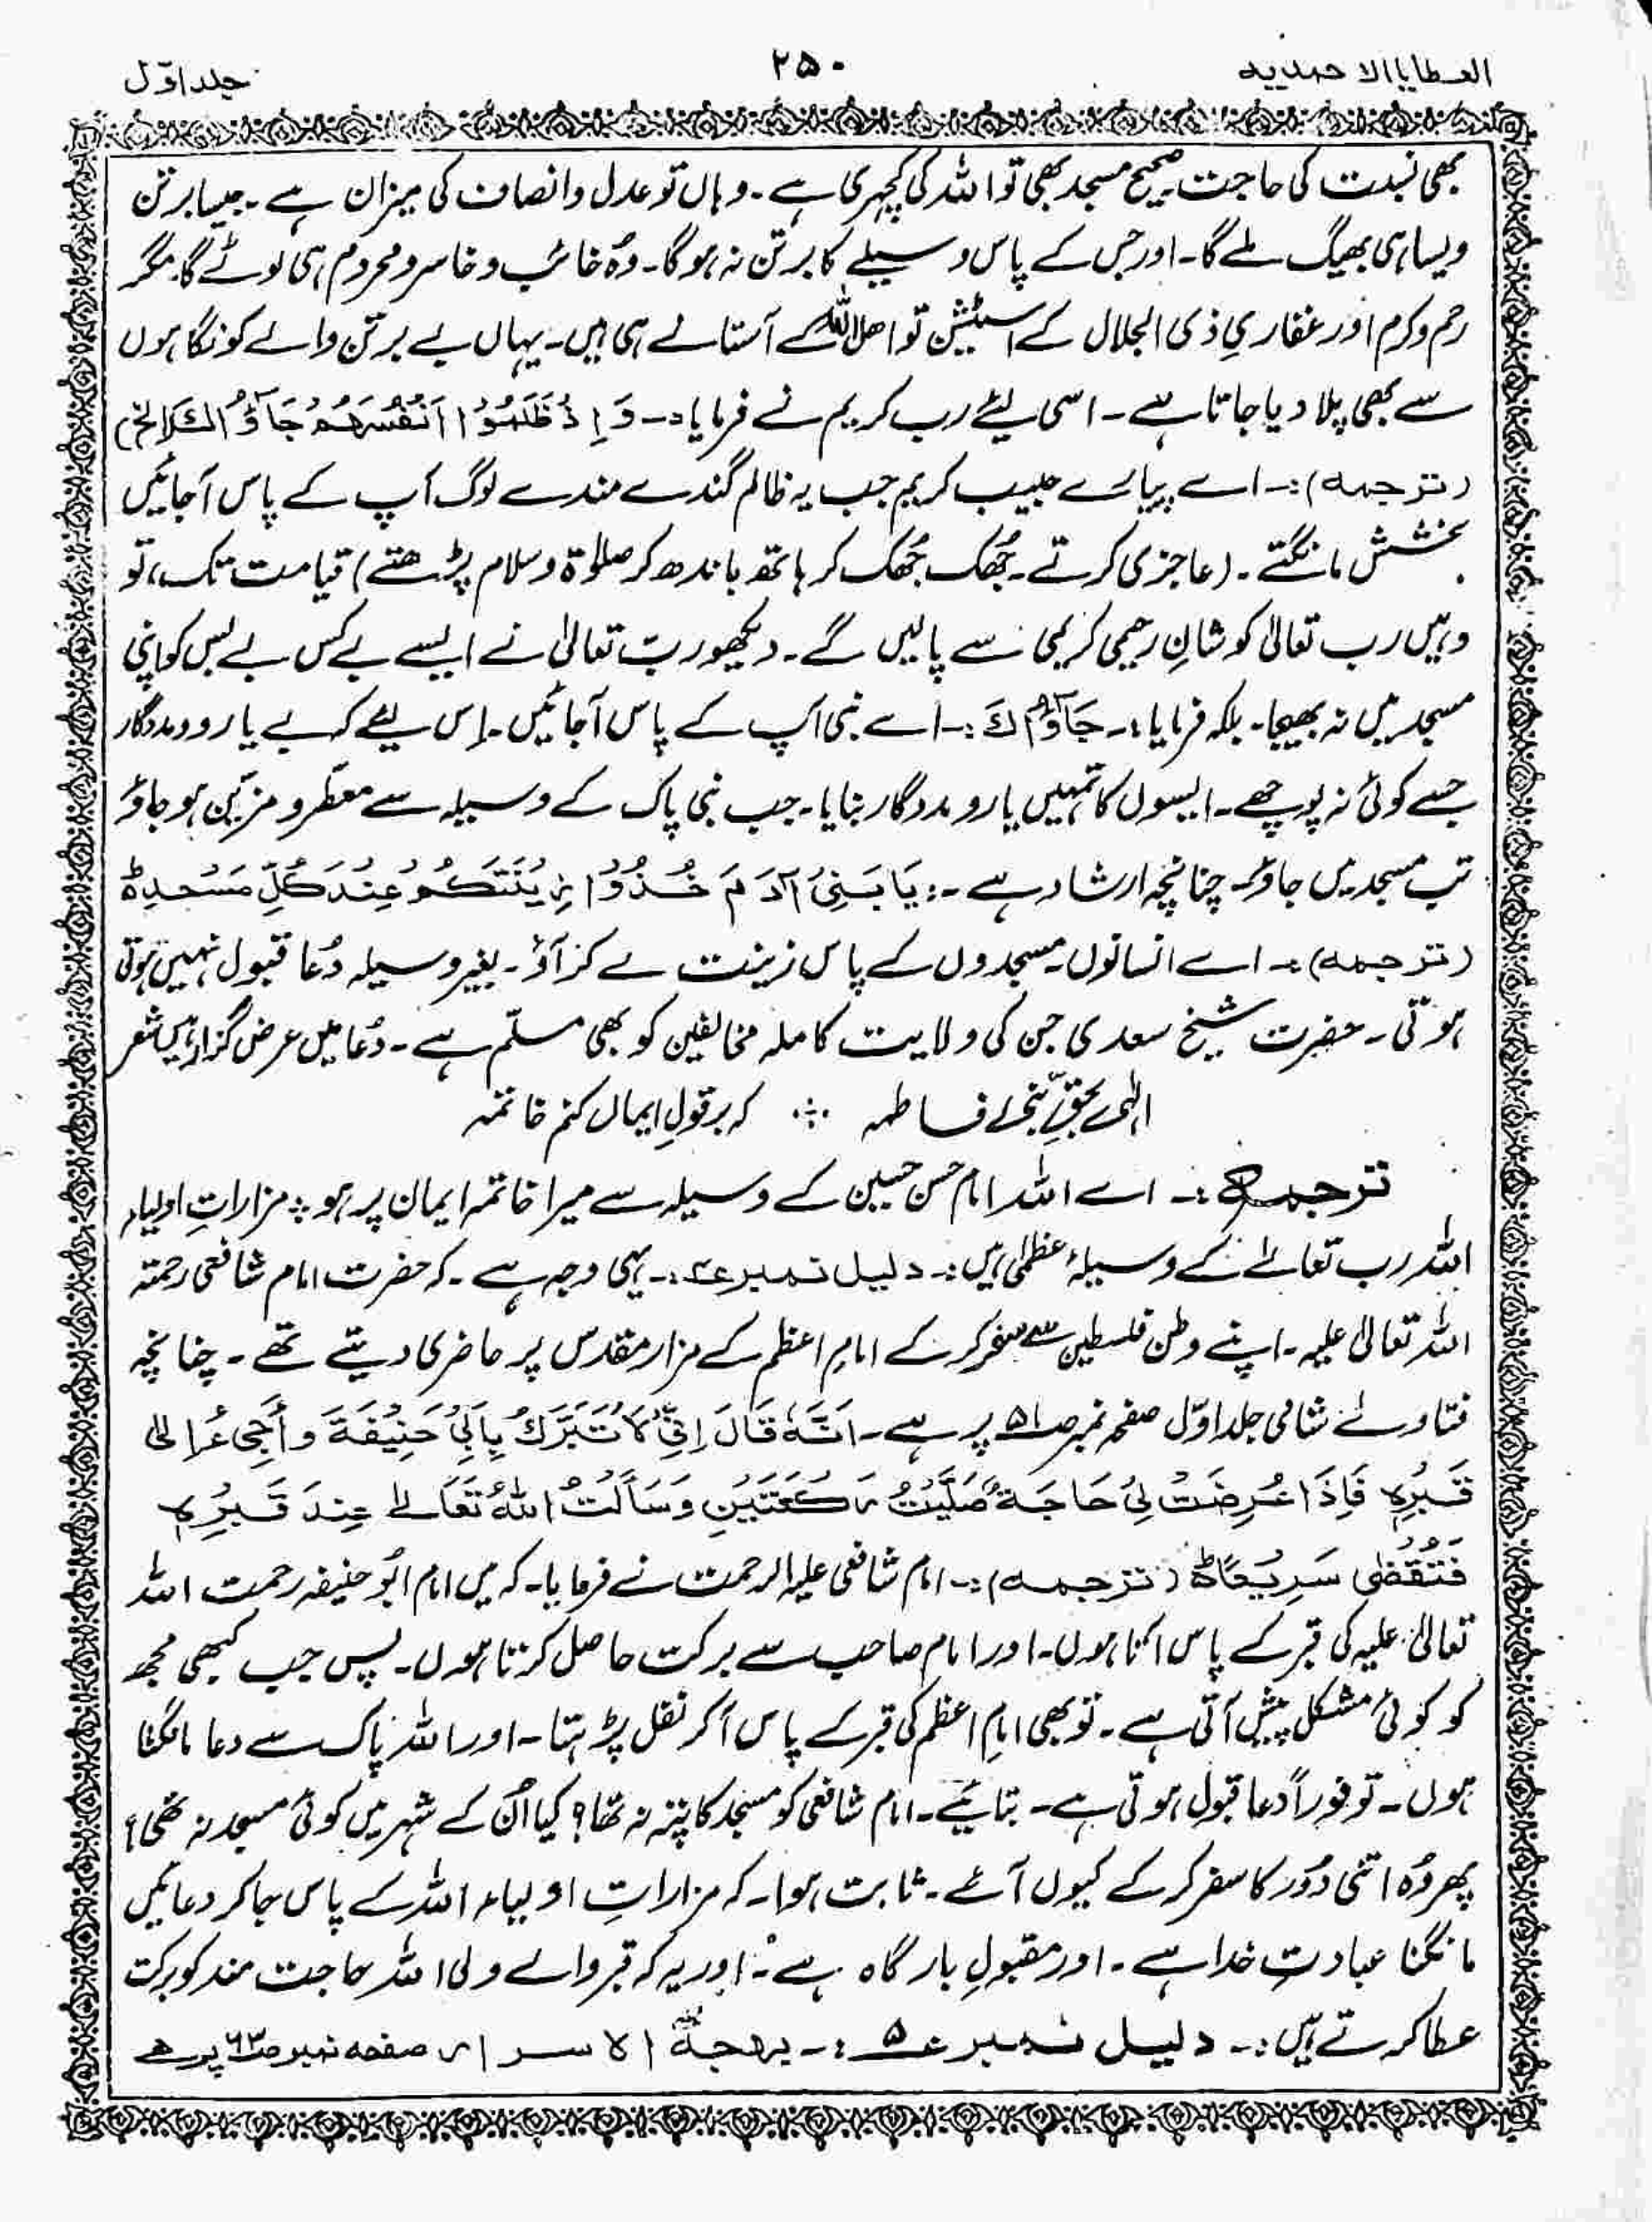 العطایا الاحمدیہ
۲۵۰
جلد اوّل
بھی نسبت کی حاجت۔ صحیح مسجد بھی تو اللہ کی کچہری ہے۔ وہاں تو عدل وانصاف کی میزان ہے۔ جیسا برتن
ویسا ہی بھیگ ملے گا۔ اور جس کے پاس وسیلے کا برتن نہ ہوگا۔ وہ خائب و خاسر و محروم ہی لوٹے گا۔ مگر
رحم و کرم اور غفاریِ ذی الجلال کے اسٹیشن تو اھل اللہ کے آستانے ہی ہیں۔ یہاں بے برتن والے کو نگاہوں
سے بھی پلا دیا جاتا ہے۔ اسی لیئے رب کریم نے فرمایا:۔ وَاِذْ ظَلَمُوْا اَنْفُسَهُمْ جَآؤُكَ (الخ)
(ترجمہ):۔ اے پیارے حبیب کریم جب یہ ظالم گندے مندے لوگ آپ کے پاس آجائیں
بخشش مانگتے۔ (عاجزی کرتے۔ جُھک جُھک کر ہاتھ باندھ کر صلوٰۃ وسلام پڑھتے) قیامت تک، تو
وہیں رب تعالیٰ کو شانِ رحیمی کریمی سے پالیں گے۔ دیکھو ربّ تعالیٰ نے ایسے بے کس بے بس کو اپنی
مسجد میں نہ بھیجا۔ بلکہ فرمایا:۔ جَآؤُكَ :۔ اے نبی آپ کے پاس آجائیں۔ اِس لیئے کہ بے یار و مددگار
جسے کوئی نہ پوچھے۔ ایسوں کا تمہیں یار و مددگار بنایا۔ جب نبی پاک کے وسیلہ سے معطّر و مزیّن ہو جاؤ
تب مسجد میں جاؤ۔ چنانچہ ارشاد ہے :۔ يَا بَنِیْ آدَمَ خُذُوْا زِيْنَتَكُمْ عِنْدَ كُلِّ مَسْجِدٍ ط
(ترجمہ):۔ اے انسانوں۔ مسجدوں کے پاس زینت لے کر آؤ۔ بغیر وسیلہ دُعا قبول نہیں ہوتی
ہوتی۔ حضرت شیخ سعدی جن کی ولایت کاملہ مخالفین کو بھی مسلّم ہے۔ دُعا میں عرض گزار ہیں شعر
الٰہی بحقِّ بنی فاطمہ ∴ کہ بر قولِ ایماں کنم خاتمہ
ترجمہ :۔ اے اللہ امام حسن حسین کے وسیلہ سے میرا خاتمہ ایمان پر ہو ∴ مزاراتِ اولیاء
اللہ رب تعالیٰ کے وسیلۂ عظمیٰ ہیں :۔ دلیل نمبر ۴ :۔ یہی وجہ ہے۔ کہ حضرت امام شافعی رحمتہ
اللہ تعالیٰ علیہ۔ اپنے وطن فلسطین سے سفر کر کے امامِ اعظم کے مزار مقدس پر حاضری دیتے تھے۔ چنانچہ
فتاوےٰ شامی جلد اوّل صفحہ نمبر ص۵۱ پر ہے۔ اَنَّهٗ قَالَ اِنِّیْ لَاَتَبَرَّكُ بِاَبِیْ حَنِيْفَةَ وَ أَجِیْءُ اِلٰی
قَبْرِهٖ فَاِذَا عُرِضَتْ لِیْ حَاجَةٌ صَلَّيْتُ رَكْعَتَيْنِ وَسَاَلْتُ اللهَ تَعَالٰی عِنْدَ قَبْرِهٖ
فَتُقْضٰی سَرِيْعًا ط (ترجمہ):۔ امام شافعی علیہ الرحمت نے فرمایا۔ کہ میں امام ابو حنیفہ رحمت اللہ
تعالیٰ علیہ کی قبر کے پاس آتا ہوں۔ اور امام صاحب سے برکت حاصل کرتا ہوں۔ پس جب کبھی مجھ
کو کوئی مشکل پیش آتی ہے۔ تو بھی امامِ اعظم کی قبر کے پاس آکر نفل پڑہتا۔ اور اللہ پاک سے دعا مانگتا
ہوں۔ تو فوراً دعا قبول ہوتی ہے۔ بتایئے۔ امام شافعی کو مسجد کا پتہ نہ تھا؟ کیا اُن کے شہر میں کوئی مسجد نہ تھی؟
پھر وہ اتنی دُور کا سفر کر کے کیوں آئے۔ ثابت ہوا۔ کہ مزاراتِ اولیاء اللہ کے پاس جا کر دعائیں
مانگنا عبادتِ خدا ہے۔ اور مقبولِ بارگاہ ہے ۔ اور یہ کہ قبر والے ولی اللہ حاجت مند کو برکت
عطا کرتے ہیں :۔ دلیل نمبر ۵ :۔ بهجةُ الاسرار صفحہ نمبر ص۶۳ پر ہے